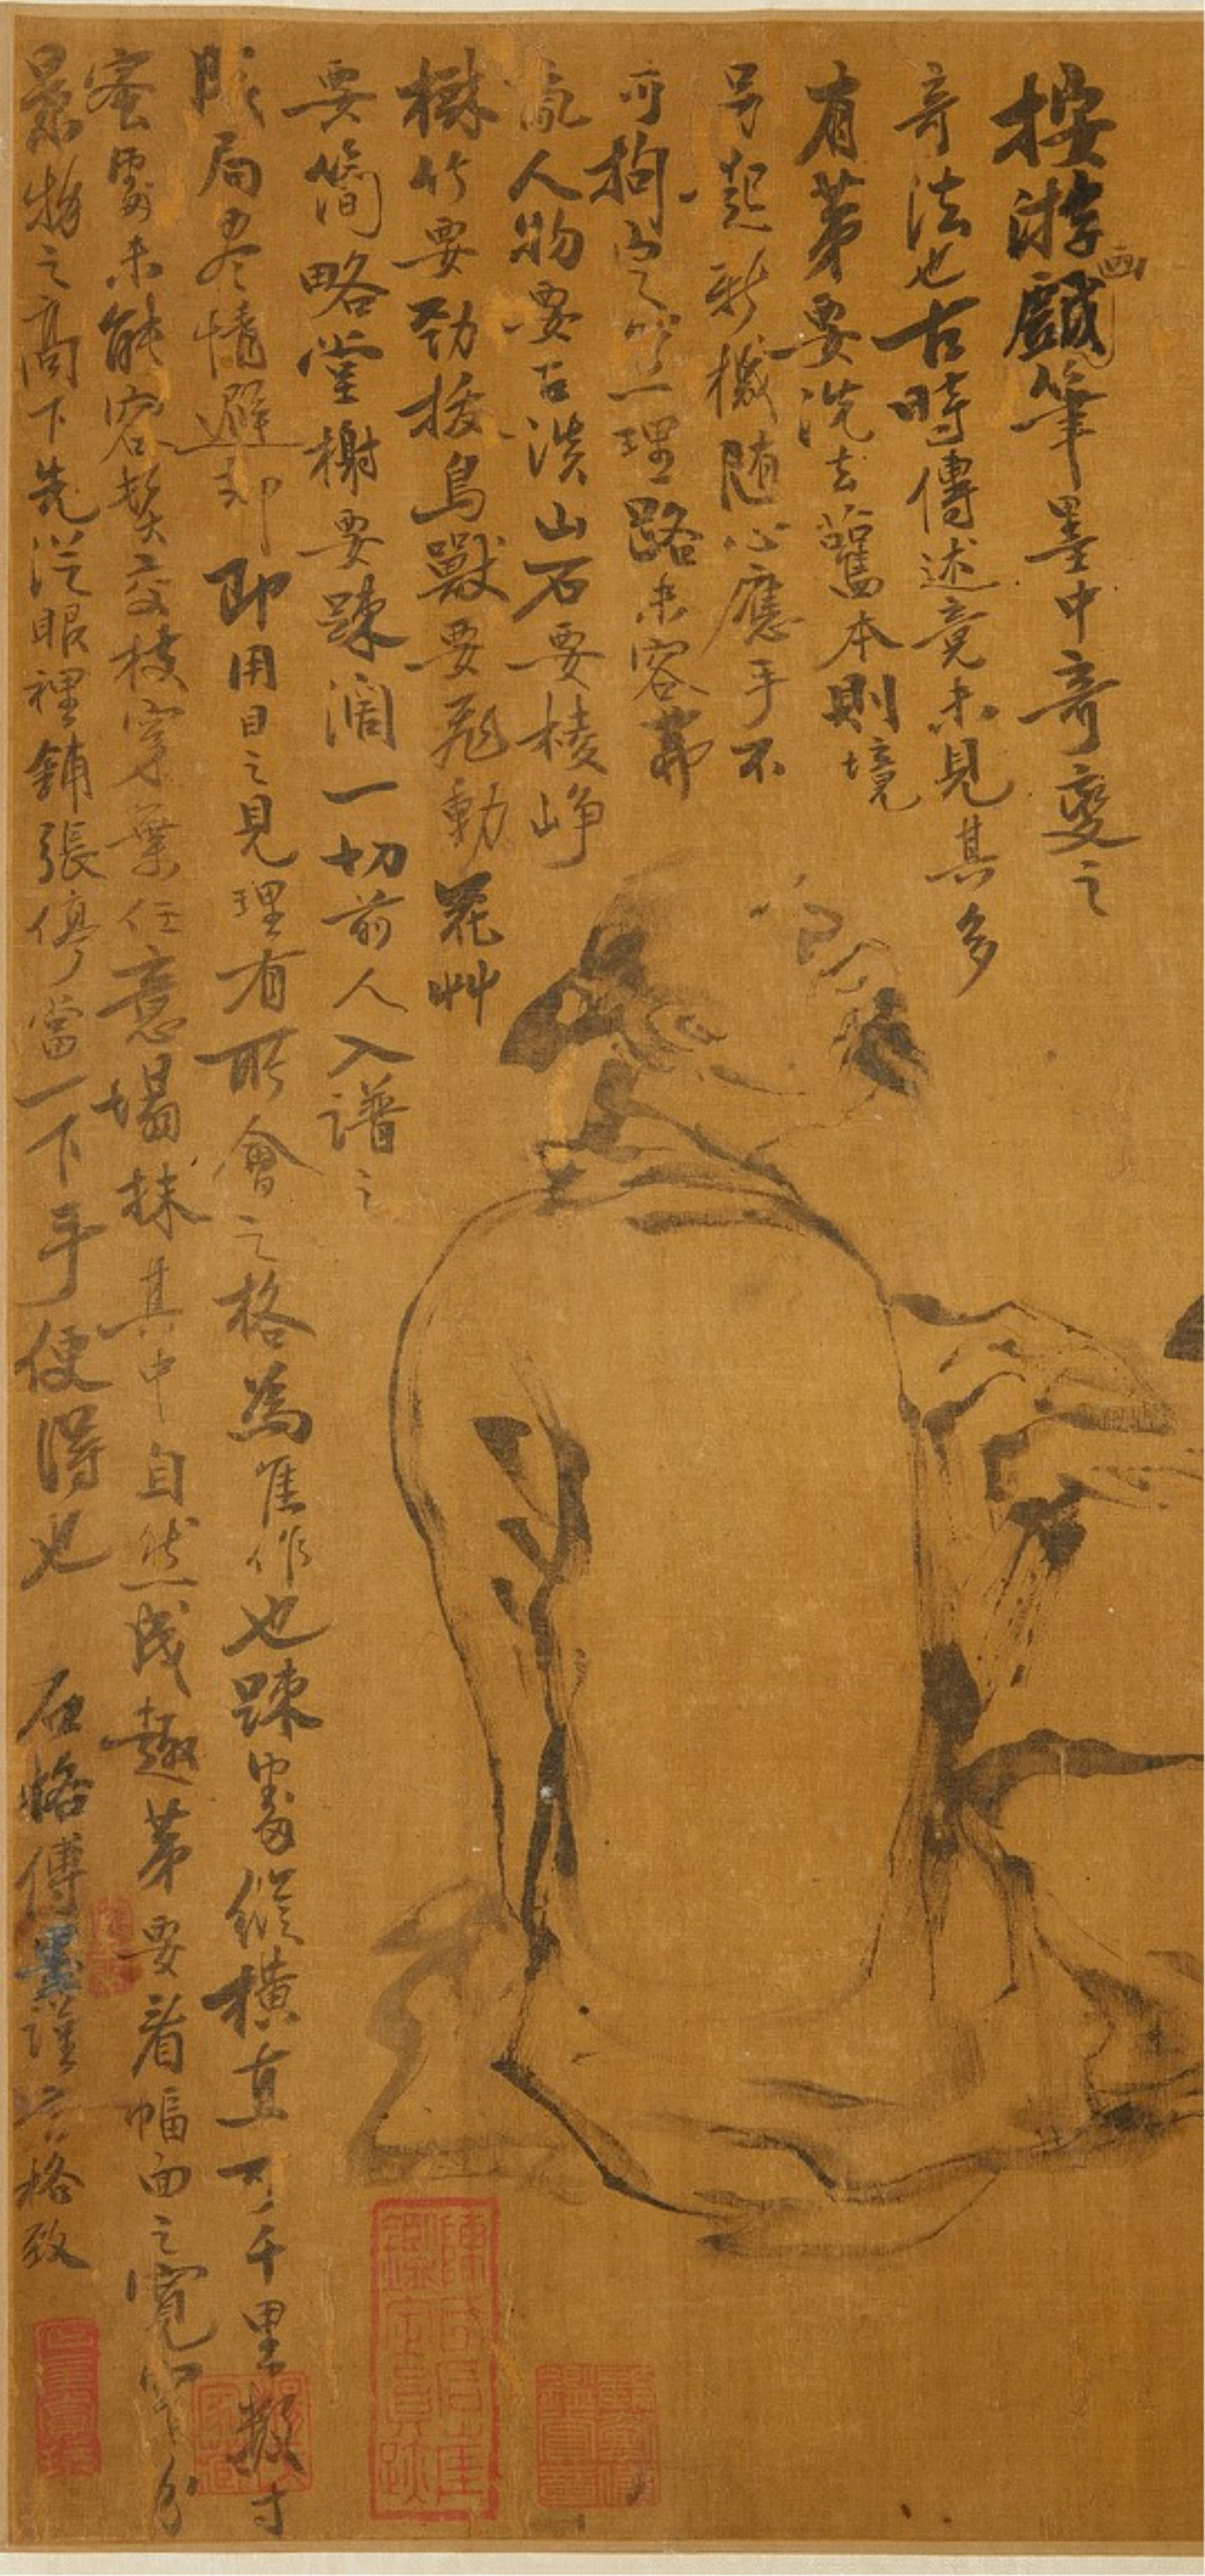 按游戲畫筆墨中奇變之
奇法也古時傳述竟未見其多
有茅要洗去舊本則境
另起新機随心應手不
可拘定然理路未容茅
亂人物要古淡山石要棱崢
樹竹要劲拔鳥獸要飛動花艸
要簡略堂榭要踈濶一切前人入譜之
局尽情避却即用目之見理有所會之格為隹作也踈處縱橫直可千里數寸
密處未能容髪交枝穿葉任意塌抹其中自然成趣茅要看幅面之寬窄分
景物之高下先從眼裡鋪張停當一下手便得也 石恪傅墨謹言格致